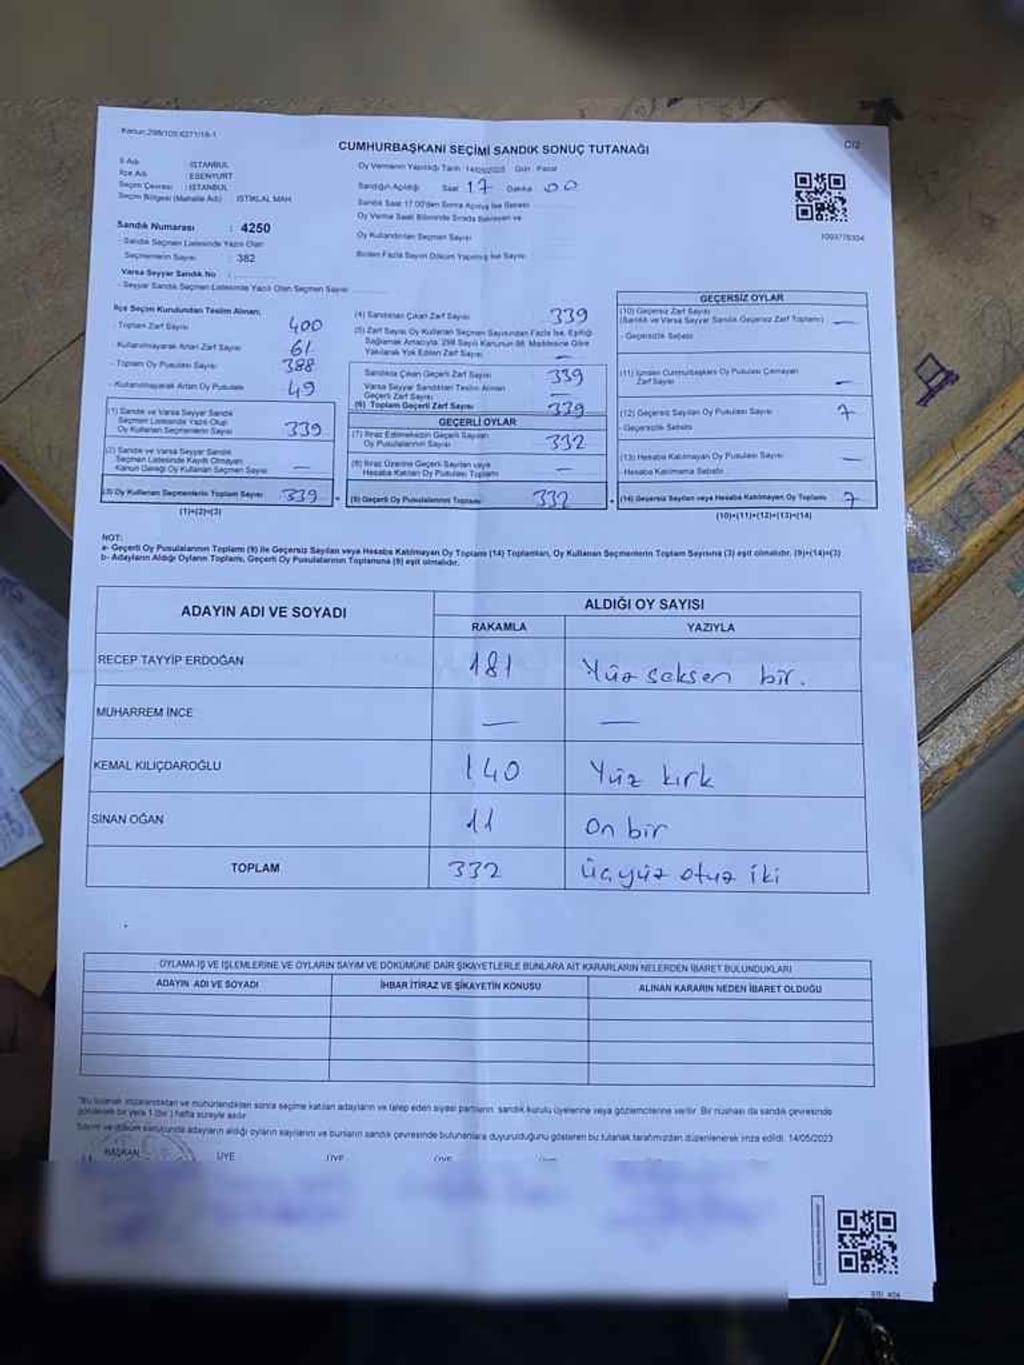 Kanun:298/105,6271/18-1
C/2
CUMHURBAŞKANI SEÇİMİ SANDIK SONUÇ TUTANAĞI
İl Adı : İSTANBUL
İlçe Adı : ESENYURT
Seçim Çevresi : İSTANBUL
Seçim Bölgesi (Mahalle Adı) : İSTİKLAL MAH.
Sandık Numarası : 4250
Sandık Seçmen Listesinde Yazılı Olan
Seçmenlerin Sayısı : 382
Varsa Seyyar Sandık No :
Seyyar Sandık Seçmen Listesinde Yazılı Olan Seçmen Sayısı
Oy Vermenin Yapıldığı Tarih : 14/05/2023 Gün : Pazar
Sandığın Açıldığı Saat 17 Dakika 00
Sandık Saat 17.00'den Sonra Açılmış İse Sebebi
Oy Verme Saati Bitiminde Sırada Bekleyen ve
Oy Kullandırılan Seçmen Sayısı
Birden Fazla Sayım Döküm Yapılmış İse Sayısı
1093776334
İlçe Seçim Kurulundan Teslim Alınan;
Toplam Zarf Sayısı 400
Kullanılmayarak Artan Zarf Sayısı 61
Toplam Oy Pusulası Sayısı 388
Kullanılmayarak Artan Oy Pusulası 49
(1) Sandık ve Varsa Seyyar Sandık
Seçmen Listesinde Yazılı Olup
Oy Kullanan Seçmenlerin Sayısı 339
(2) Sandık ve Varsa Seyyar Sandık
Seçmen Listesinde Kayıtlı Olmayan
Kanun Gereği Oy Kullanan Seçmen Sayısı —
(3) Oy Kullanan Seçmenlerin Toplam Sayısı 339
(1)+(2)=(3)
(4) Sandıktan Çıkan Zarf Sayısı 339
(5) Zarf Sayısı Oy Kullanan Seçmen Sayısından Fazla İse, Eşitliği
Sağlamak Amacıyla, 298 Sayılı Kanunun 98. Maddesine Göre
Yakılarak Yok Edilen Zarf Sayısı —
Sandıkta Çıkan Geçerli Zarf Sayısı 339
Varsa Seyyar Sandıktan Teslim Alınan
Geçerli Zarf Sayısı —
(6) Toplam Geçerli Zarf Sayısı 339
GEÇERLİ OYLAR
(7) İtiraz Edilmeksizin Geçerli Sayılan
Oy Pusulalarının Sayısı 332
(8) İtiraz Üzerine Geçerli Sayılan veya
Hesaba Katılan Oy Pusulası Toplamı —
(9) Geçerli Oy Pusulalarının Toplamı 332
GEÇERSİZ OYLAR
(10) Geçersiz Zarf Sayısı
(Sandık ve Varsa Seyyar Sandık Geçersiz Zarf Toplamı) —
- Geçersizlik Sebebi
(11) İçinden Cumhurbaşkanı Oy Pusulası Çıkmayan
Zarf Sayısı —
(12) Geçersiz Sayılan Oy Pusulası Sayısı 7
- Geçersizlik Sebebi
(13) Hesaba Katılmayan Oy Pusulası Sayısı —
Hesaba Katılmama Sebebi
(14) Geçersiz Sayılan veya Hesaba Katılmayan Oy Toplamı 7
(10)+(11)+(12)+(13)=(14)
NOT:
a- Geçerli Oy Pusulalarının Toplamı (9) ile Geçersiz Sayılan veya Hesaba Katılmayan Oy Toplamı (14) Toplamları, Oy Kullanan Seçmenlerin Toplam Sayısına (3) eşit olmalıdır. (9)+(14)=(3)
b- Adayların Aldığı Oyların Toplamı, Geçerli Oy Pusulalarının Toplamına (9) eşit olmalıdır.
ADAYIN ADI VE SOYADI
ALDIĞI OY SAYISI
RAKAMLA YAZIYLA
RECEP TAYYİP ERDOĞAN 181 Yüz seksen bir.
MUHARREM İNCE — —
KEMAL KILIÇDAROĞLU 140 Yüz kırk
SİNAN OĞAN 11 On bir
TOPLAM 332 üçyüz otuz iki
OYLAMA İŞ VE İŞLEMLERİNE VE OYLARIN SAYIM VE DÖKÜMÜNE DAİR ŞİKAYETLERLE BUNLARA AİT KARARLARIN NELERDEN İBARET BULUNDUKLARI
ADAYIN ADI VE SOYADI İHBAR İTİRAZ VE ŞİKAYETİN KONUSU ALINAN KARARIN NEDEN İBARET OLDUĞU
*Bu tutanak imzalandıktan ve mühürlendikten sonra seçime katılan adayların ve talep eden siyasi partilerin, sandık kurulu üyelerine veya gözlemcilerine verilir. Bir nüshası da sandık çevresinde
görülecek bir yere 1 (bir) hafta süreyle asılır.
Sayım ve döküm sonucunda adayların aldığı oyların sayılarını ve bunların sandık çevresinde bulunanlara duyurulduğunu gösteren bu tutanak tarafımızdan düzenlenerek imza edildi. 14/05/2023
BAŞKAN ÜYE ÜYE ÜYE